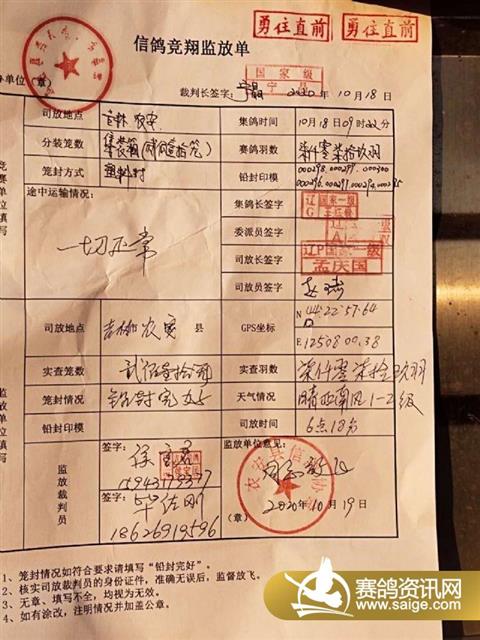 勇往直前
勇往直前
信鸽竞翔监放单
办单位(章)
裁判长签字:
国家级
宁昌
2020年10月18日
司放地点
吉林农安
集鸽时间
10月18日09时22分
分装笼数
赛鸽羽数
柒仟零柒拾玖羽
笼封方式
塑料封
铅封印模
000298.000299.000300
000296.000297.000294.000295
途中运输情况:
一切正常
集鸽长签字
辽国家一级
委派员签字
司放长签字
辽P国家一级
孟庆国
司放员签字
司放地点
吉林农安县
GPS坐标
N 44:22:57.64
E 125:08:00.38
实查笼数
实查羽数
柒仟零柒拾玖羽
笼封情况
铅封完好
天气情况
晴西南风1-2级
铅封印模
司放时间
6点18分
监放裁判员
签字:
15943179377
签字:
毕佐刚
18626919596
监放单位意见:
同意放飞
农安县信鸽协会
(章)
2020年10月19日
1、笼封情况如符合要求请填写“铅封完好”。
2、核实司放裁判员的身份证件,准确无误后,监督放飞。
3、无章、填写不全,均视为无效。
4、如有涂改,注明情况并加盖公章。
赛鸽资讯网
www.saige.com